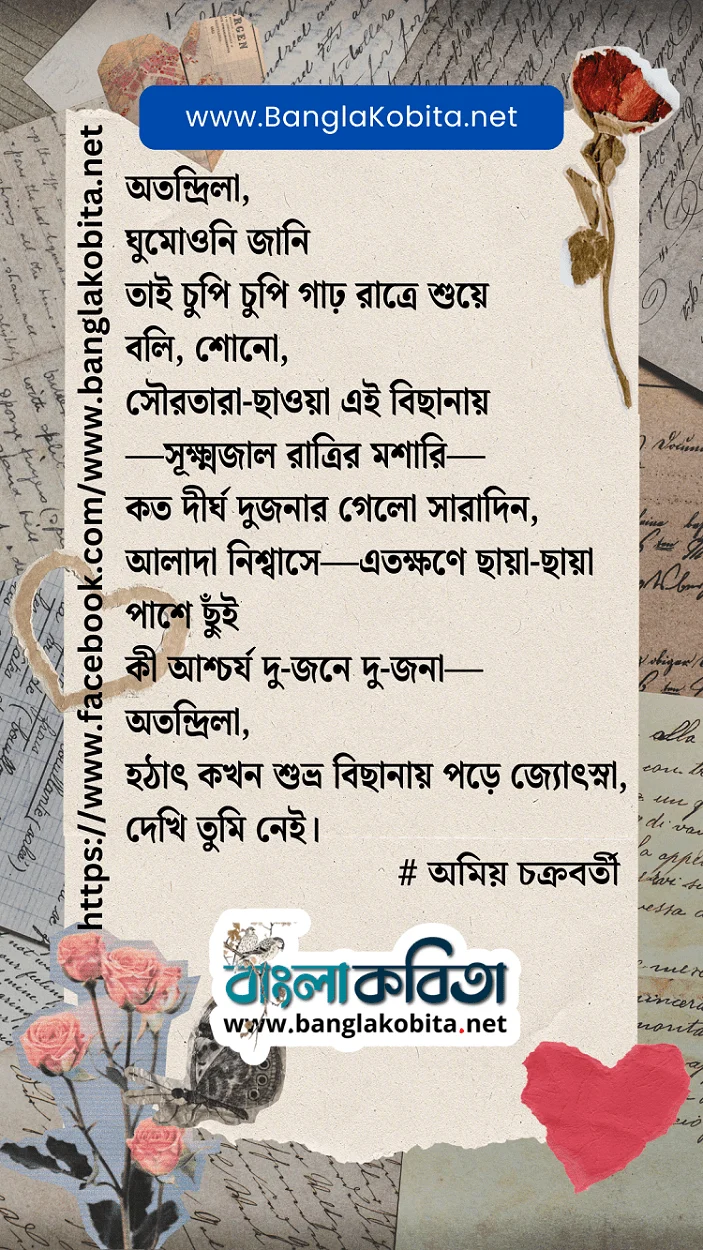 www.BanglaKobita.net
https://www.facebook.com/www.banglakobita.net
অতন্দ্রিলা,
ঘুমোওনি জানি
তাই চুপি চুপি গাঢ় রাত্রে শুয়ে
বলি, শোনো,
সৌরতারা-ছাওয়া এই বিছানায়
—সূক্ষ্মজাল রাত্রির মশারি—
কত দীর্ঘ দুজনার গেলো সারাদিন,
আলাদা নিশ্বাসে—এতক্ষণে ছায়া-ছায়া
পাশে ছুঁই
কী আশ্চর্য দু-জনে দু-জনা—
অতন্দ্রিলা,
হঠাৎ কখন শুভ্র বিছানায় পড়ে জ্যোৎস্না,
দেখি তুমি নেই।
# অমিয় চক্রবর্তী
বাংলাকবিতা
www.banglakobita.net